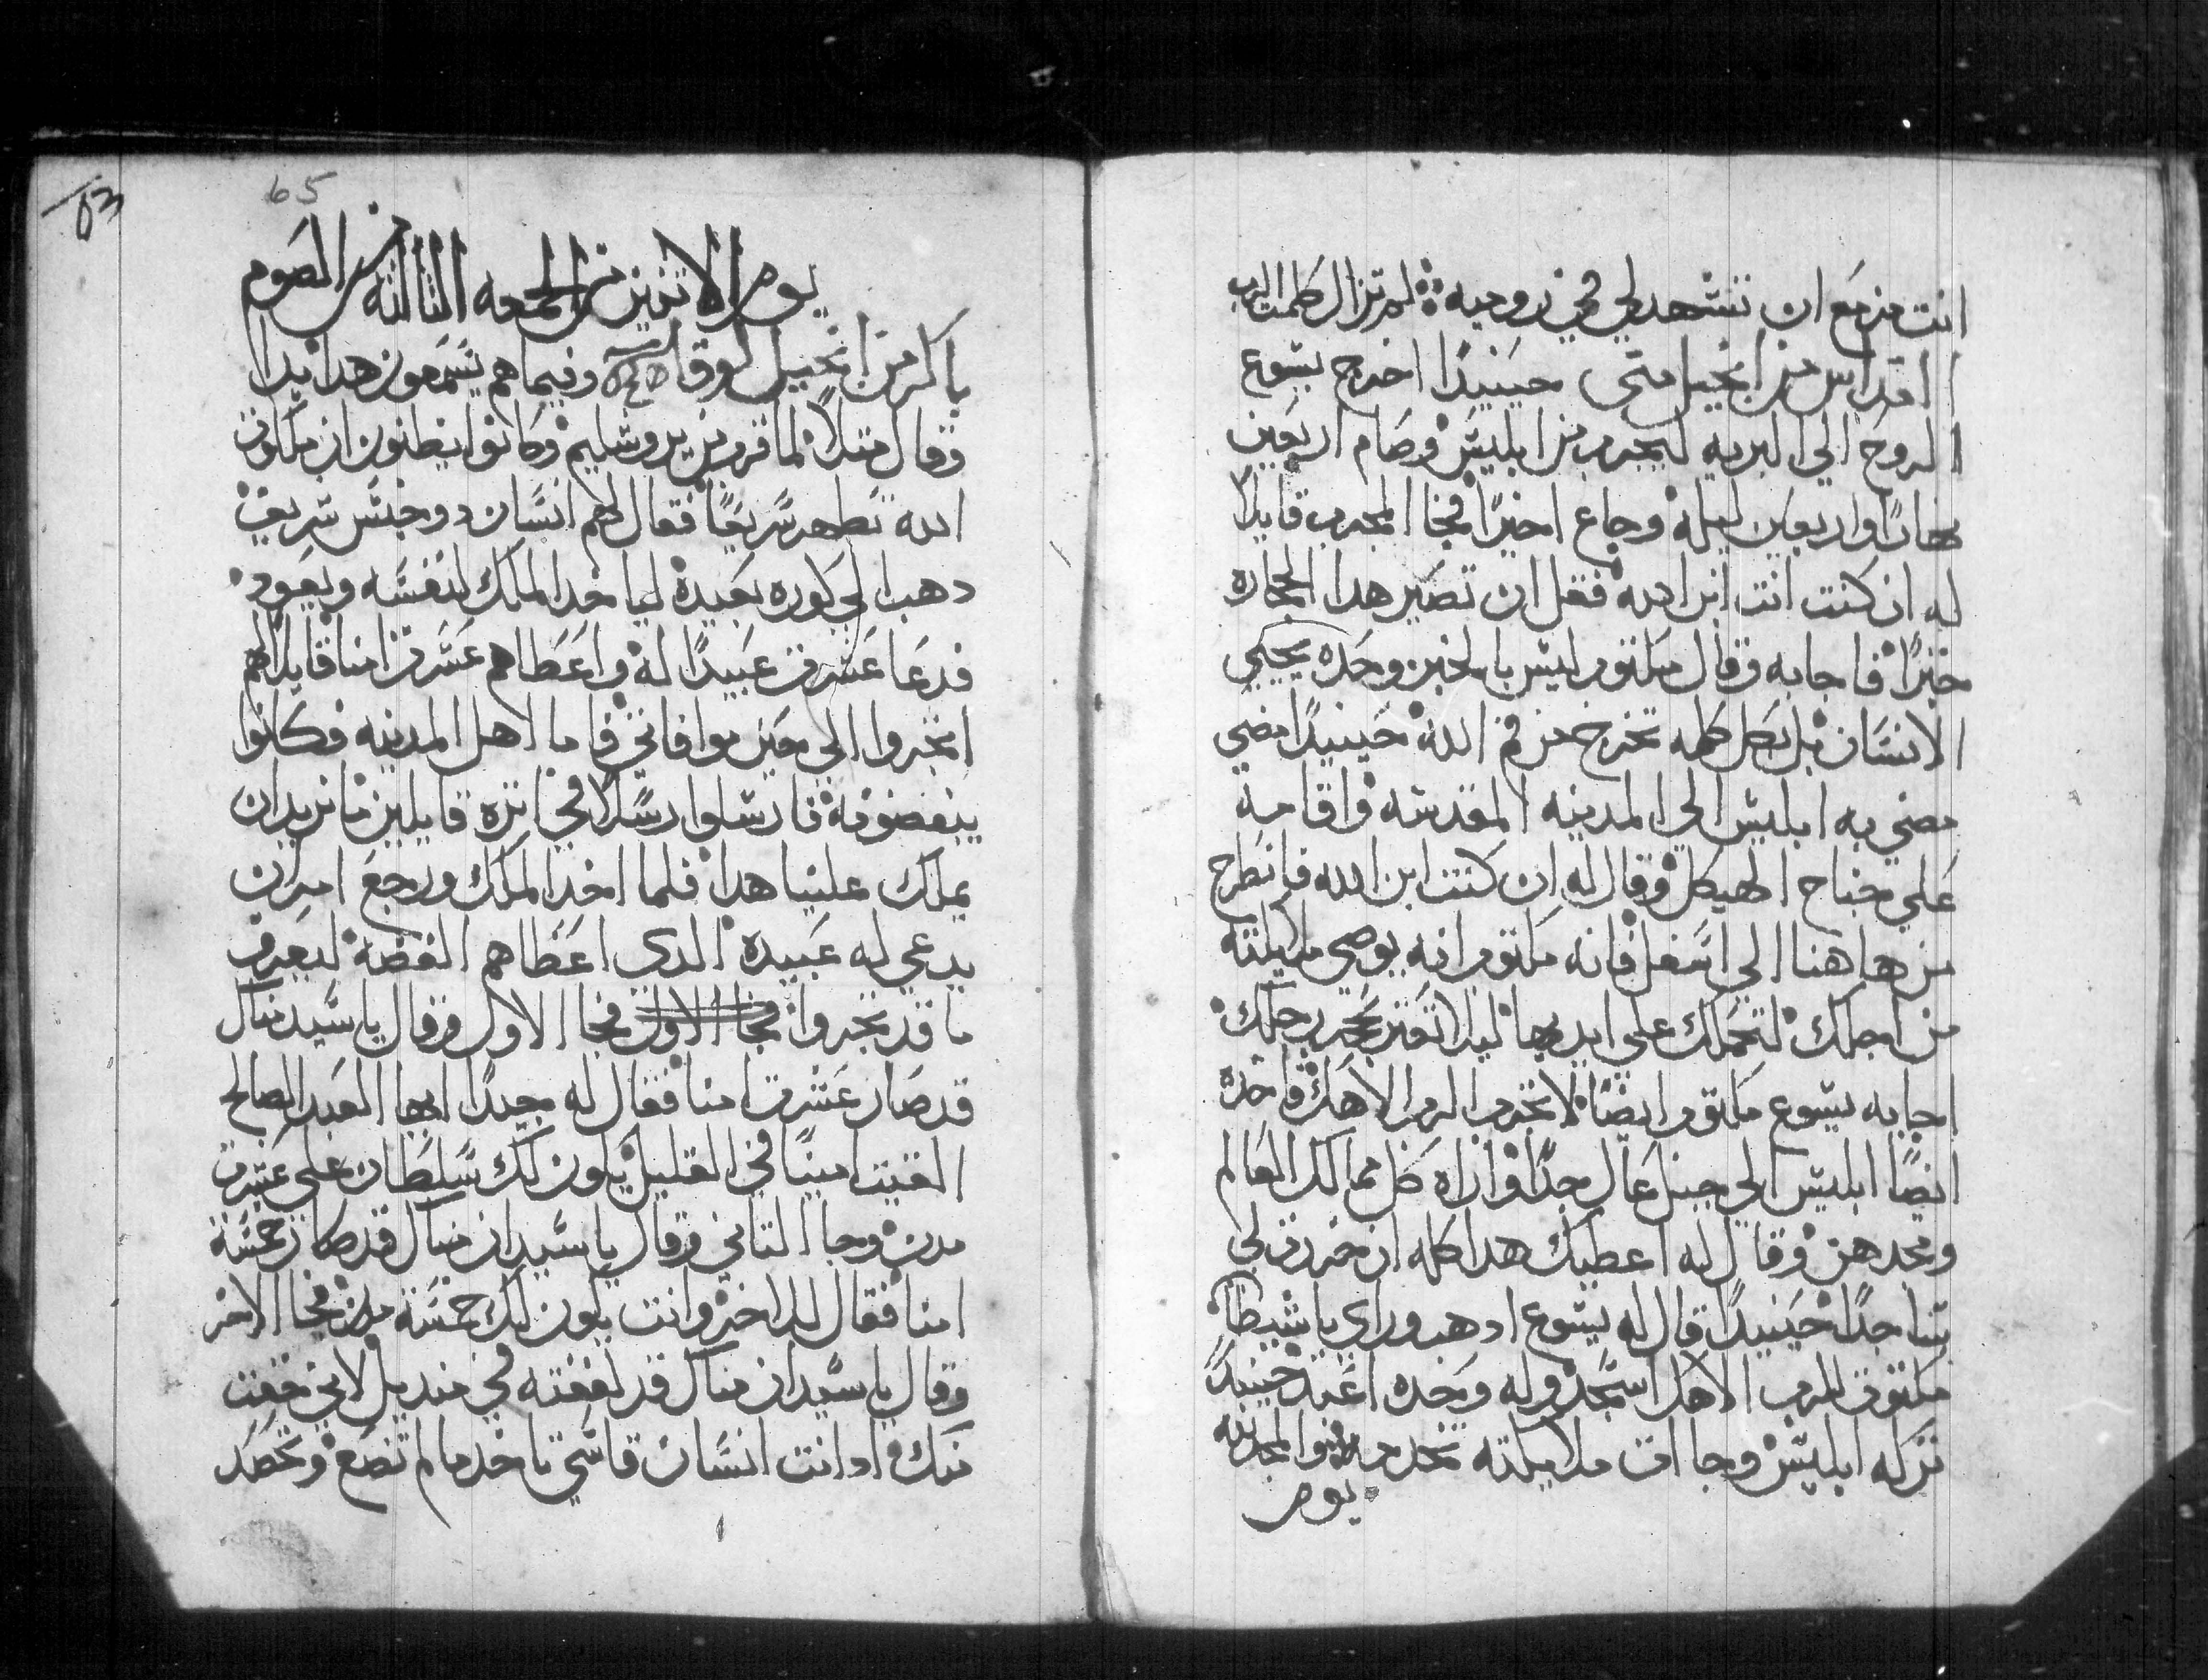 انت مزمع ان تشهد لي في روميه ܀ لم تزال كلمت الرب
القداس من انجيل متى حينيدًا اخرج يسوع
الروح الى البريه ليجرب من ابليس وصام اربعين
نهارًا واربعين ليله وجاع اخيرًا فجا المجرب قايلا
له ان كنت انت ابن الله فقل ان تصير هدا الحجاره
خبزًا فاجابه وقال مكتوب ليس بالخبز وحده يحيي
الانسان بل بكل كلمه تخرج من فم الله حينيدًا مضي
مضي به ابليس الي المدينه المقدسه واقامه
علي جناح الهيكل وقال له ان كنت ابن الله فانطرح
من هاهنا الي اسفل فانه مكتوب انه يوصي ملايكته
من اجلك لتحملك علي ايديها ليلا تعتر بحجر رجلك
اجابه يسوع مكتوب ايضًا لا تجرب الرب الاهك فاخده
ايضًا ابليس الي جبل عال جدًا واراه كل ممالك العالم
ومجدهن وقال له اعطيك هدا كله ان خررت لي
ساجدًا حينيدًا قال له يسوع ادهب وراي يا شيطان
مكتوب للرب الاهك اسجد وله وحده اعبد حينيدً
تركه ابليس وجاات ملايكته تخدمه والمجد لله
يوم
65
63
يوم الاتنين من الجمعه التالته من الصوم
باكر من انجيل لوقا وفيما هم يسمعون هدا بدا
وقال متلاً لما قرب من يروشليم وكانوا يظنون ان ملكوت
الله تظهر سريعًا فقال لهم انسان دو جنس شريف
دهب الي كوره بعيدة لياخد الملك لنفسه ويعود
فدعا عشرت عبيدًا له واعطاهم عشرت امنا قايلا لهم
اتجروا الي حين موافاتي فاما اهل المدينه فكانوا
يبغضونه فارسلوا رسلا في اتره قايلين ما نريد ان
يملك علينا هدا فلما اخد الملك ورجع امر ان
يدعي له عبيده الدي اعطاهم الفضه ليعرف
ما قد تجروا فجا الاول فجا الاول وقال يا سيد مناك
قد صار عشرت امنا فقال له جيدًا ايها العبد الصالح
الفيت امينًا في القليل يكون لك سلطان علي عشرت
مدن وجا التاني وقال يا سيد ان مناك قد صار خمسة
امنا فقال للاخر وانت يكون لك خمسة مدن فجا الاخر
وقال يا سيد ان مناك قد لففته في منديل لاني خفت
منك اد انت انسان قاسي تاخد ما لم تضع وتحصد